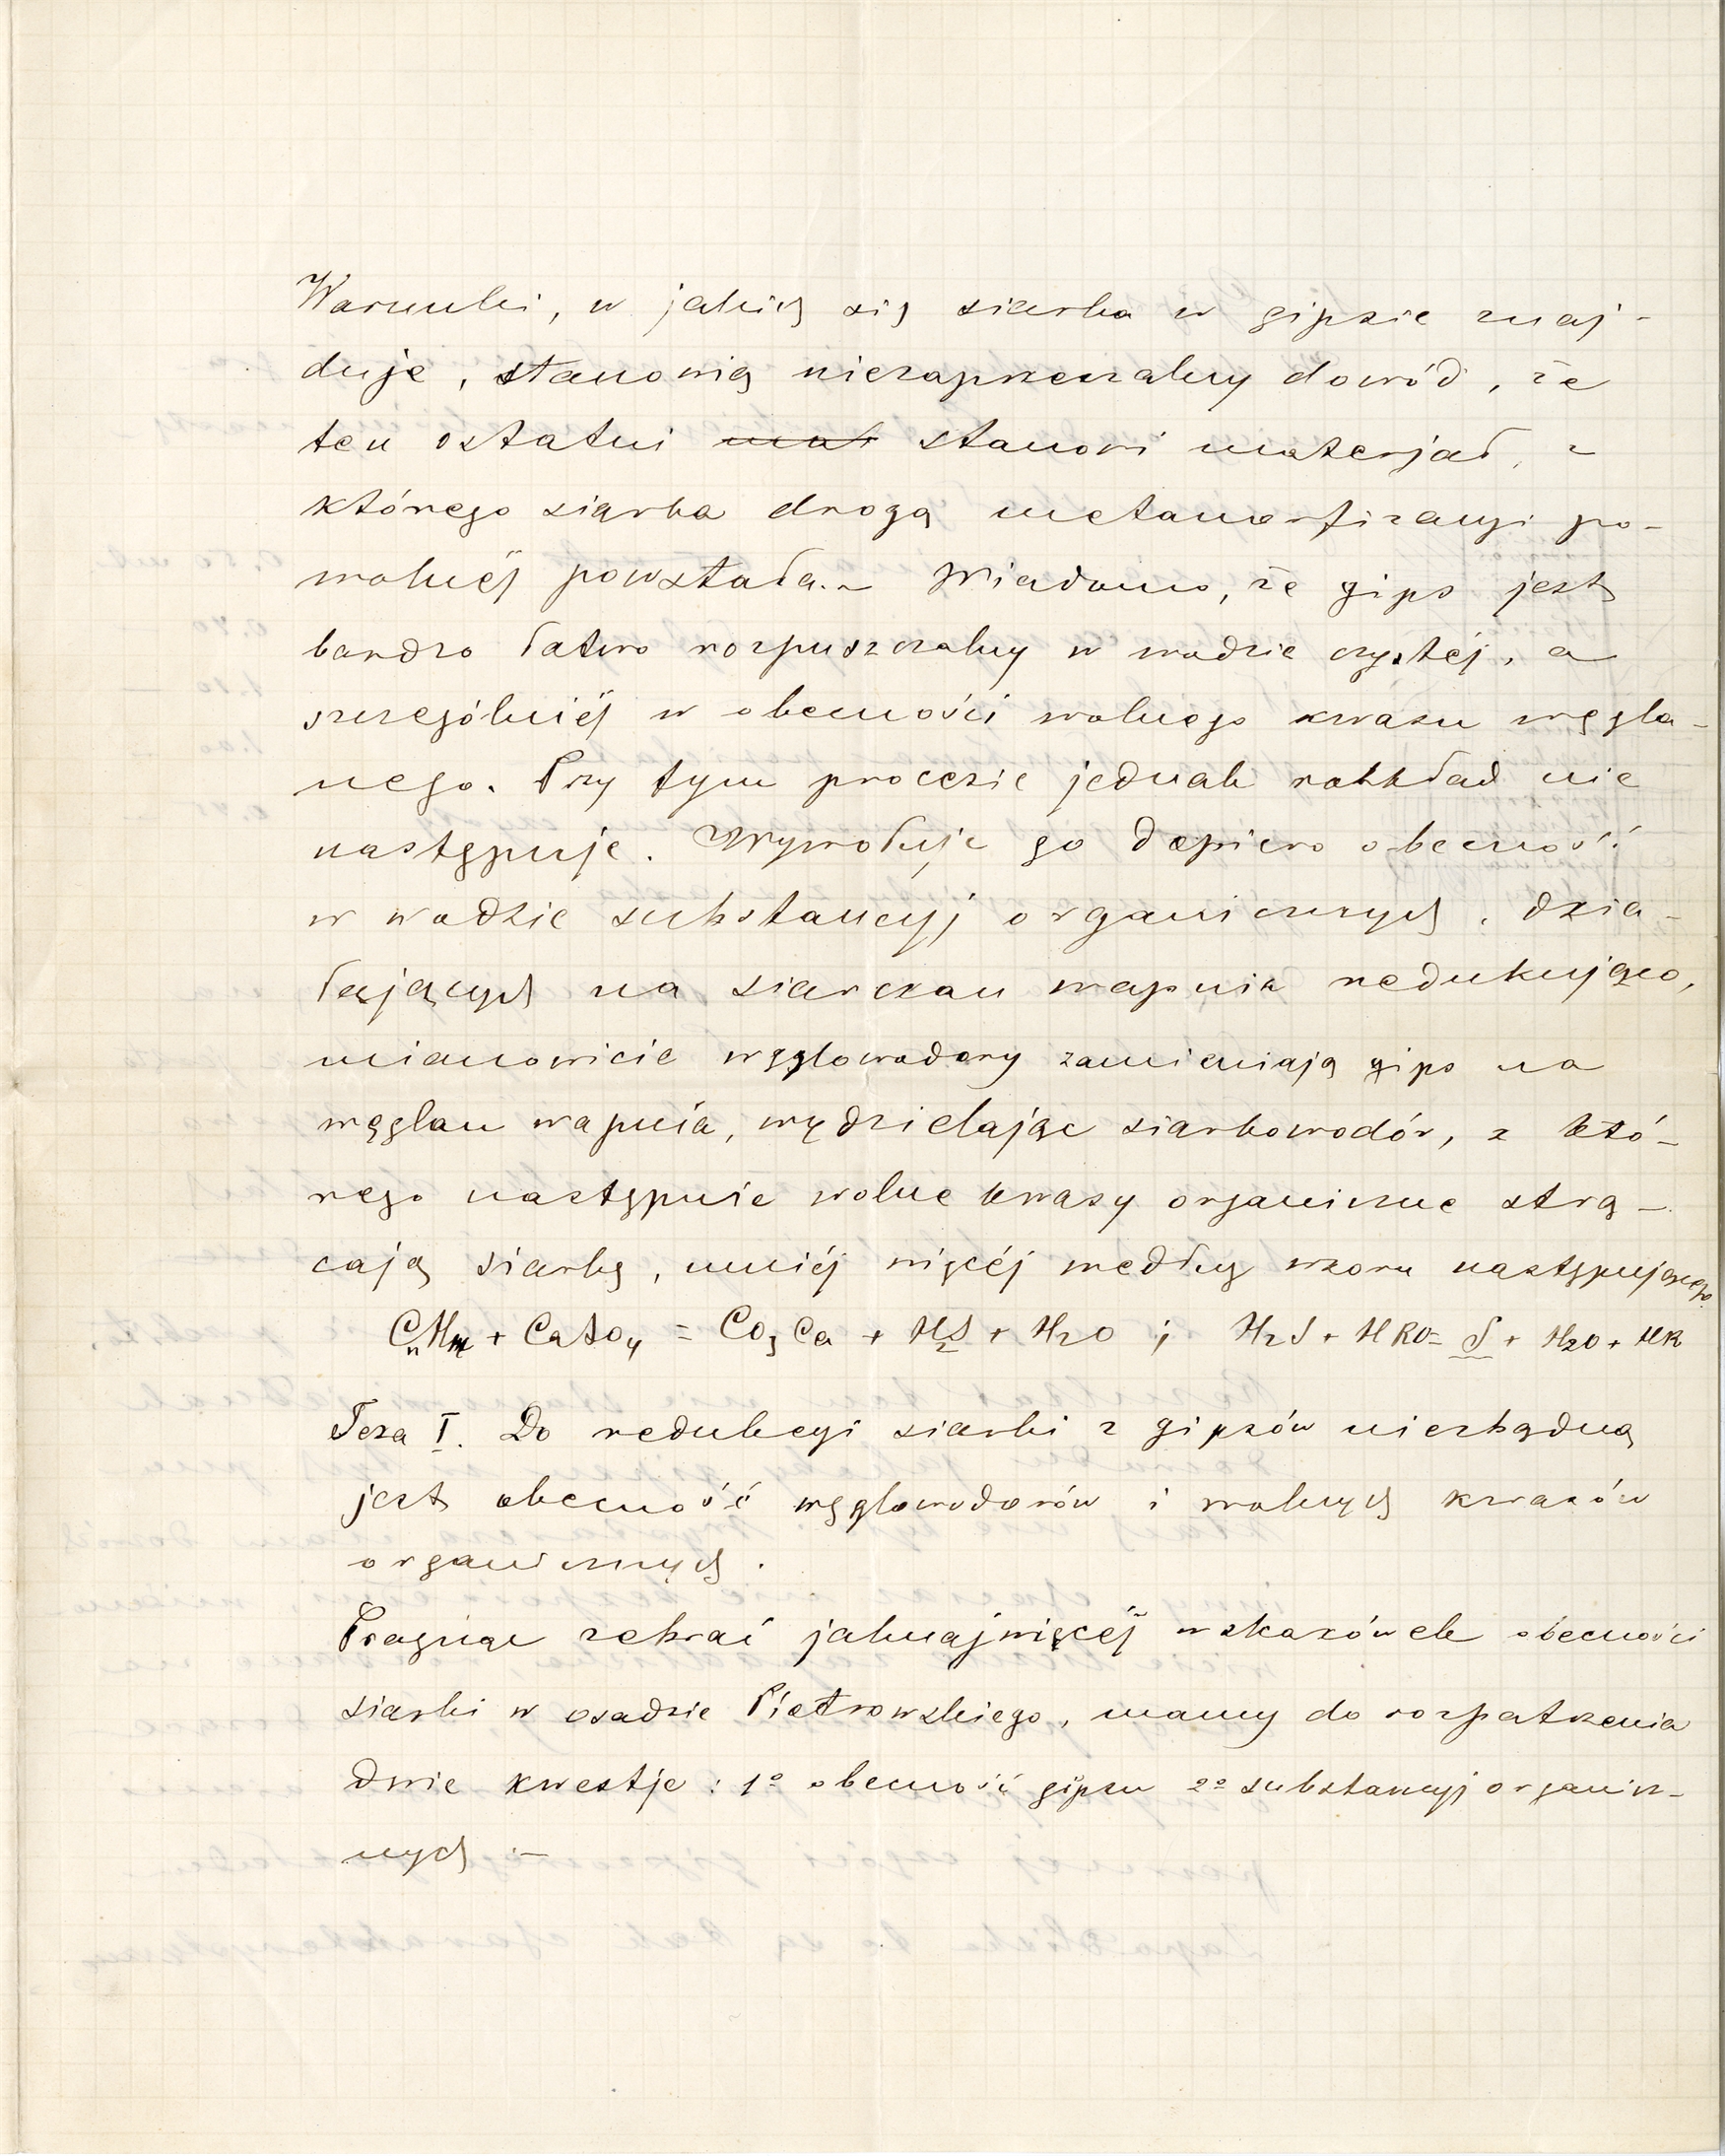 Warunki, w jakich się siarka w gipsie znaj-
duje, stanowią niezaprzeczalny dowód, że
ten ostatni mat stanowi materjał, z
którego siarka drogą metamorfizacyi po-
wolnéj powstała.- Wiadomo, że gips jest
bardzo łatwo rozpuszczalny w wodzie czystéj, a
szczególniéj w obecności wolnego kwasu węgla-
nego. Przy tym procesie jednak rozkład nie
następuje. Wywołuje go dopiero obecność
w wodzie substancyj organicznych, dzia-
łających na siarczan wapnia redukująco,
mianowicie węglowodory zamieniają gips na
węglan wapnia, wydzielając siarkowodór, z któ-
rego następnie wolne kwasy organiczne strą-
cają siarkę, mniéj więcéj według wzoru następującego.
CnHm + CaSO4 = CO3Ca + H2S + H2O ; H2S + HRO = S + H2O + HR
Teza I. Do redukcyi siarki z gipsów niezbędną
jest obecność węglowodorów i wolnych kwasów
organicznych.
Pragnąc zebrać jaknajwięcéj wskazówek obecności
siarki w osadzie Piotrowskiego, mamy do rozpatrzenia
dwie kwestje: 1º obecność gipsu 2º substancyj organicz-
nych.-